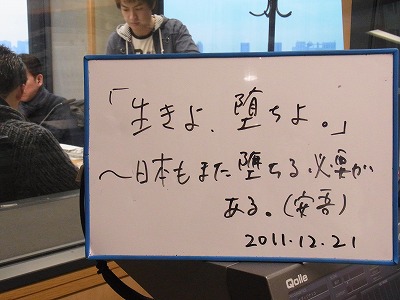 「生きよ、堕ちよ。」
～日本もまた堕ちる必要が
ある。(安吾)
2011.12.21
Qolle